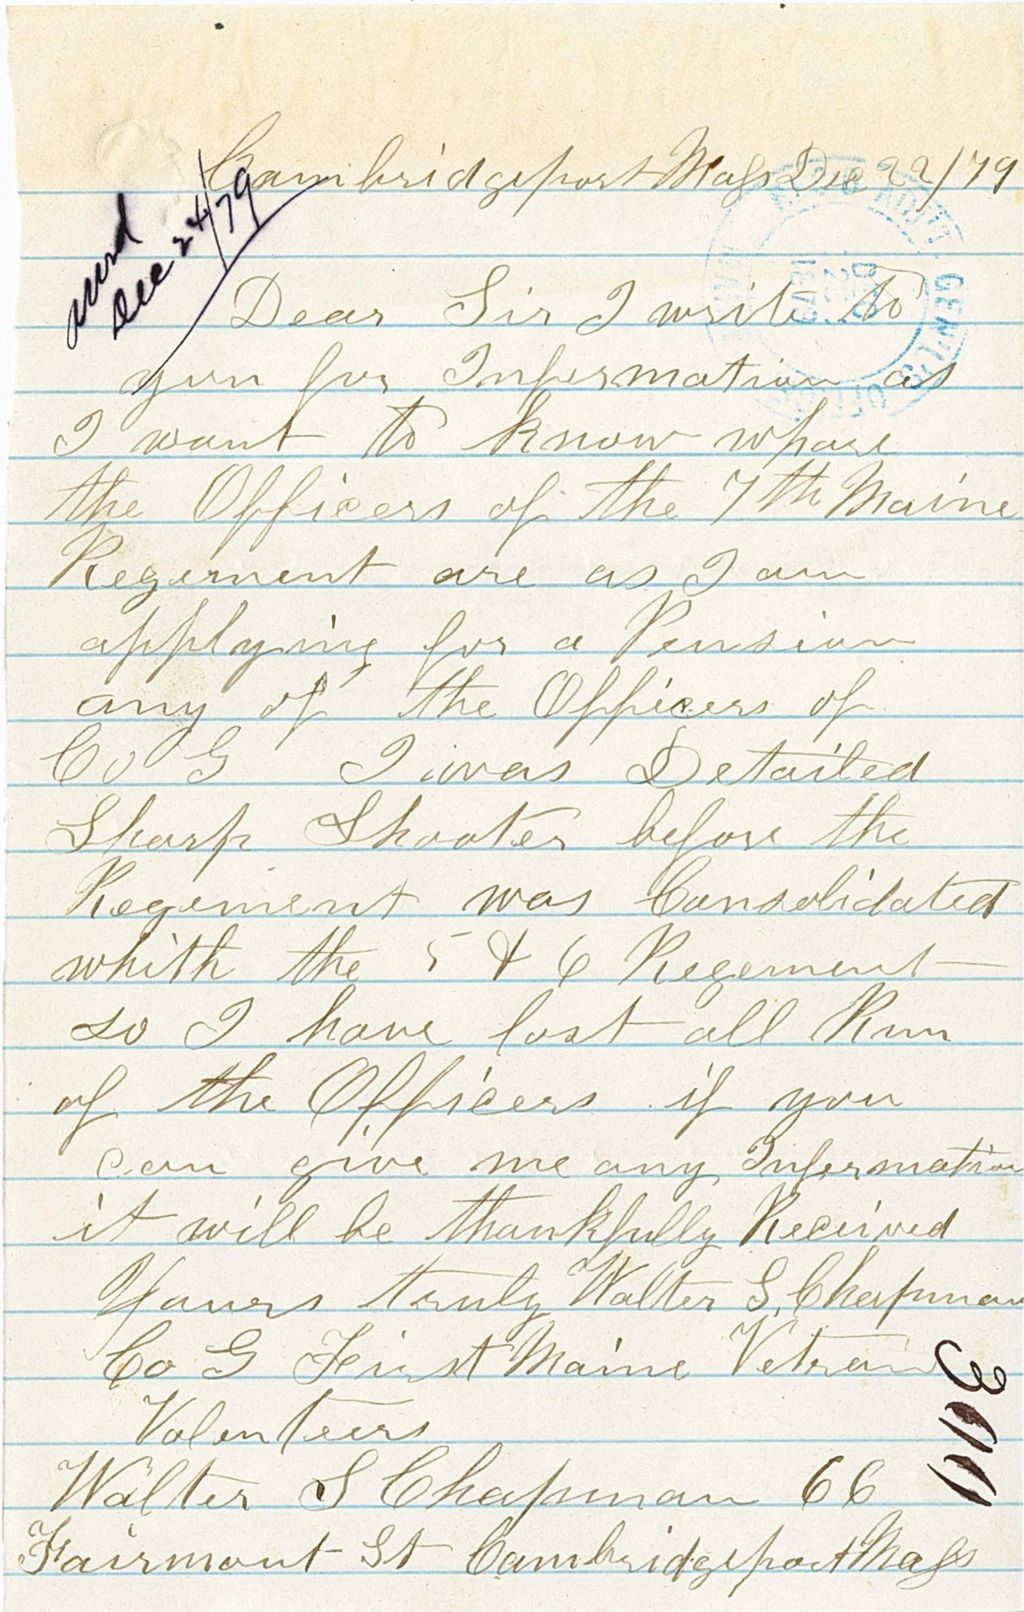 Cambridgeport Mass Dec 22/79
Dec 24/79
Dear Sir I write to
you for Information as
I want to know whare
the Officers of the 7th Maine
Regement are as I am
applying for a Pension
any of the Officers of
Co G I was Detailed
Sharp Shooter before the
Regement was Consolidated
whith the 5 & 6 Regement
so I have lost all Run
of the Officers if you
can give me any Information
it will be thankfully Received
Yours truly Walter S. Chapman
Co G First Maine Vetran
Volenteers
Walter S Chapman 66
Fairmont St Cambridgeport Mass